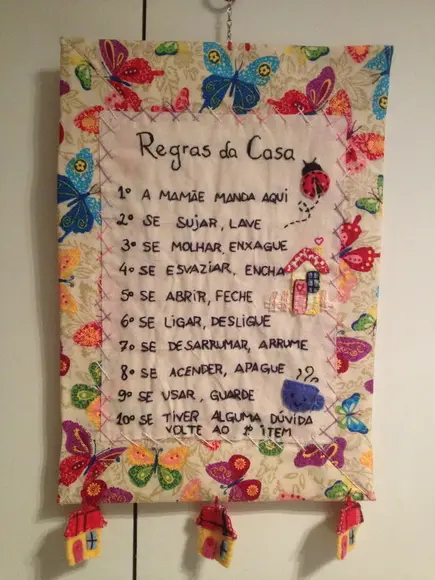 Regras da Casa
1º A MAMÃE MANDA AQUI
2º SE SUJAR, LAVE
3º SE MOLHAR, ENXAGUE
4º SE ESVAZIAR, ENCHA
5º SE ABRIR, FECHE
6º SE LIGAR, DESLIGUE
7º SE DESARRUMAR, ARRUME
8º SE ACENDER, APAGUE
9º SE USAR, GUARDE
10º SE TIVER ALGUMA DÚVIDA
VOLTE AO 1º ITEM